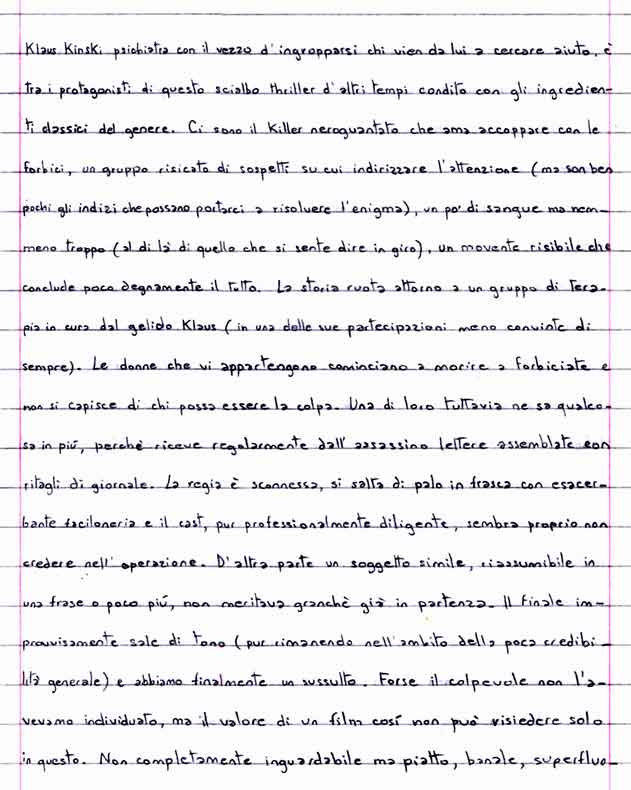 Klaus Kinski psichiatra con il vezzo d'ingropparsi chi vien da lui a cercare aiuto, è
tra i protagonisti di questo scialbo thriller d'altri tempi condito con gli ingredien-
ti classici del genere. Ci sono il killer neroguantato che ama accoppare con le
forbici, un gruppo risicato di sospetti su cui indirizzare l'attenzione (ma son ben
pochi gli indizi che possano portarci a risolvere l'enigma), un po' di sangue ma nem-
meno troppo (al di là di quello che si sente dire in giro), un movente risibile che
conclude poco degnamente il tutto. La storia ruota attorno a un gruppo di tera-
pia in cura dal gelido Klaus (in una delle sue partecipazioni meno convinte di
sempre). Le donne che vi appartengono cominciano a morire a forbiciate e
non si capisce di chi possa essere la colpa. Una di loro tuttavia ne sa qualco-
sa in più, perchè riceve regolarmente dall'assassino lettere assemblate con
ritagli di giornale. La regia è sconnessa, si salta di palo in frasca con esacer-
bante faciloneria e il cast, pur professionalmente diligente, sembra proprio non
credere nell'operazione. D'altra parte un soggetto simile, riassumibile in
una frase o poco più, non meritava granchè già in partenza. Il finale im-
provvisamente sale di tono (pur rimanendo nell'ambito della poca credibi
lità generale) e abbiamo finalmente un sussulto. Forse il colpevole non l'a-
vevamo individuato, ma il valore di un film così non può risiedere solo
in questo. Non completamente inguardabile ma piatto, banale, superfluo